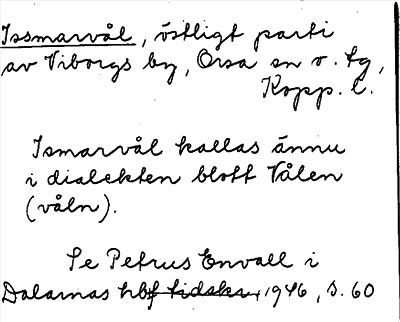 Issmarvål, östligt parti
av Viborgs by, Orsa sn o. tg,
Kopp. l.
Ismarvål kallas ännu
i dialekten blott Vålen
(våln).
Se Petrus Envall i
Dalarnas hbf tidskr, 1946, s. 60